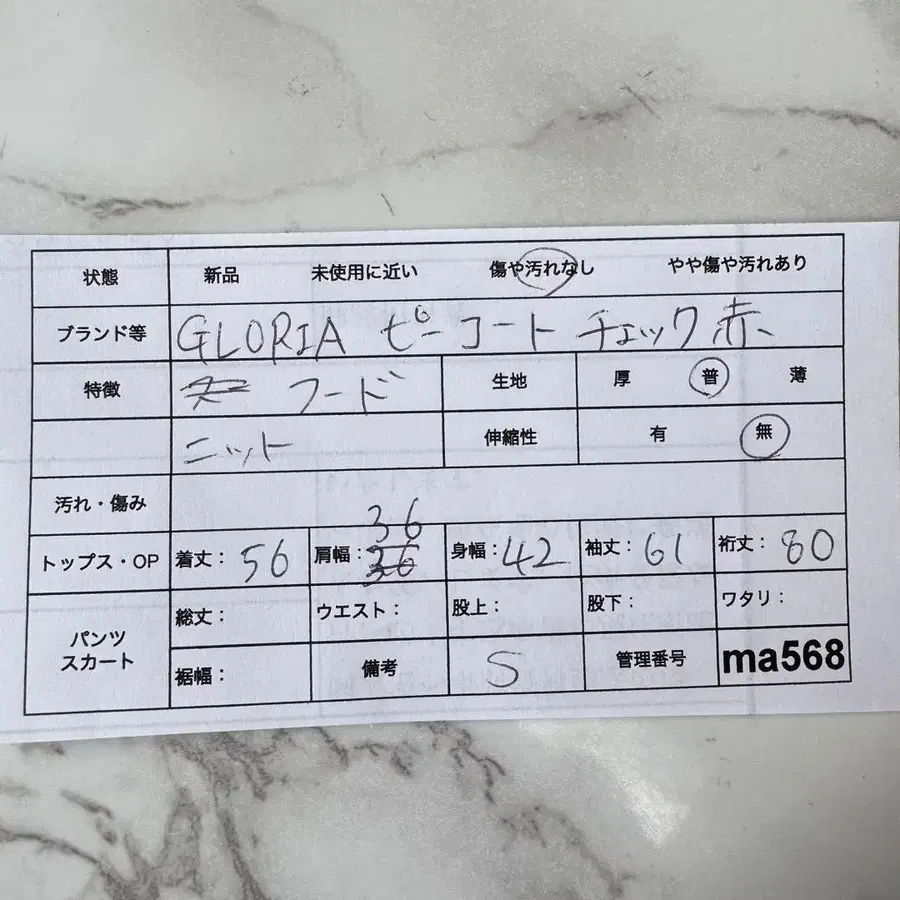 状態 新品 未使用に近い 傷や汚れなし やや傷や汚れあり
ブランド等 GLORIA ピーコート チェック 赤
特徴 フード 生地 厚 普 薄
ニット 伸縮性 有 無
汚れ・傷み
36
トップス・OP 着丈: 56 肩幅: 36 身幅: 42 袖丈: 61 裄丈: 80
パンツ スカート 総丈: ウエスト: 股上: 股下: ワタリ:
裾幅: 備考 S 管理番号 ma568